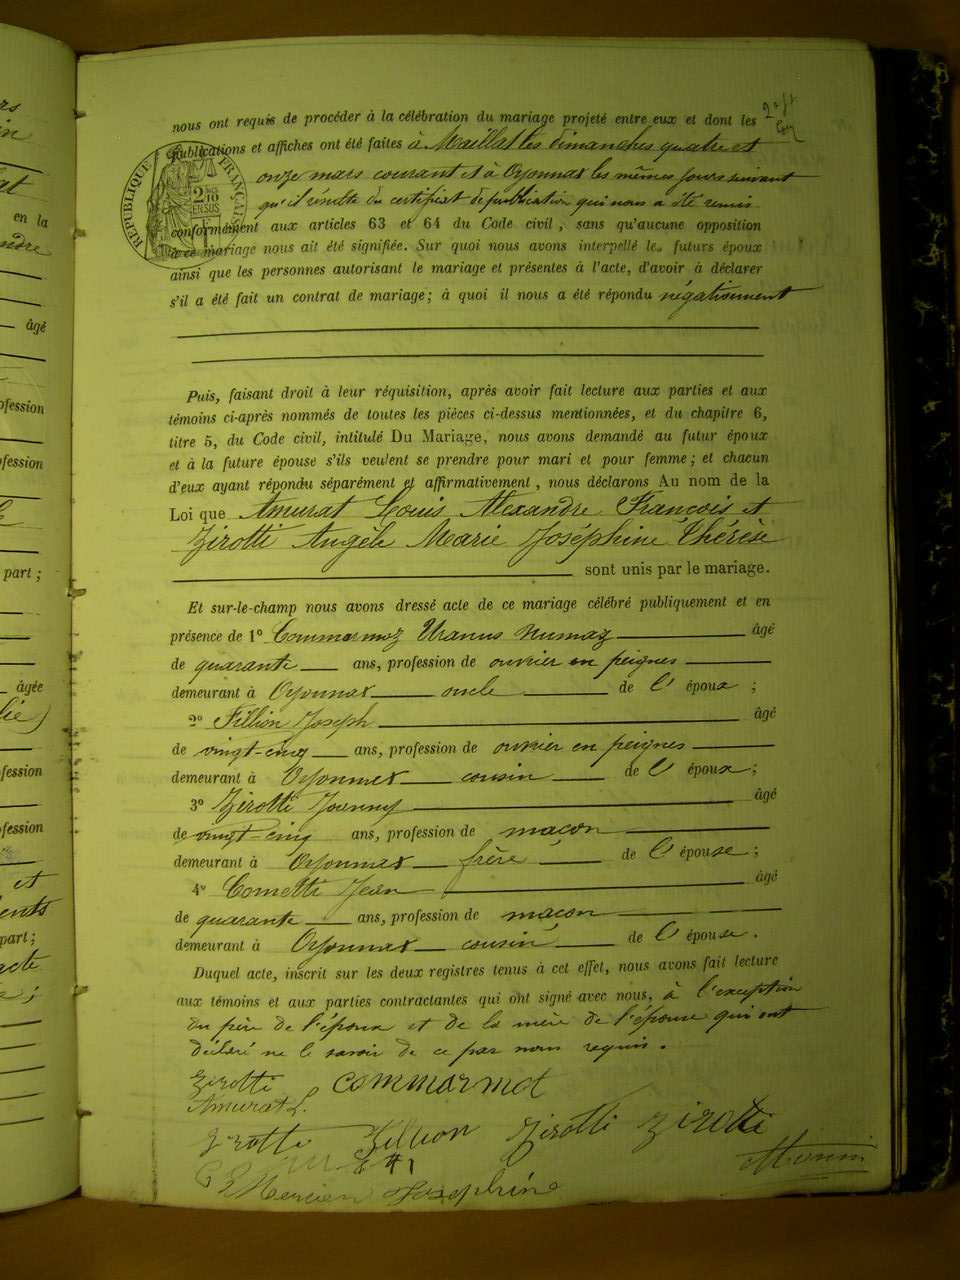 nous ont requis de procéder à la célébration du mariage projeté entre eux et dont les
publications et affiches ont été faites à Maillat les dimanches quatre et
onze mars courant et à Oyonnax les mêmes jours suivant
qu'il résulte du certificat de publication qui nous a été remis
conformément aux articles 63 et 64 du Code civil, sans qu'aucune opposition
à ce mariage nous ait été signifiée. Sur quoi nous avons interpellé les futurs époux
ainsi que les personnes autorisant le mariage et présentes à l'acte, d'avoir à déclarer
s'il a été fait un contrat de mariage; à quoi il nous a été répondu négativement
RÉPUBLIQUE FRANÇAISE
2/10 EN SUS
Puis, faisant droit à leur réquisition, après avoir fait lecture aux parties et aux
témoins ci-après nommés de toutes les pièces ci-dessus mentionnées, et du chapitre 6,
titre 5, du Code civil, intitulé Du Mariage, nous avons demandé au futur époux
et à la future épouse s'ils veulent se prendre pour mari et pour femme; et chacun
d'eux ayant répondu séparément et affirmativement, nous déclarons Au nom de la
Loi que Amurat Louis Alexandre François et
Zirotti Angèle Marie Joséphine Thérèse
sont unis par le mariage.
Et sur-le-champ nous avons dressé acte de ce mariage célébré publiquement et en
présence de 1º Commarmoz Uranus Numaz âgé
de quarante ans, profession de ouvrier en peignes
demeurant à Oyonnax oncle de l'époux;
2º Fillion Joseph âgé
de vingt-cinq ans, profession de ouvrier en peignes
demeurant à Oyonnax cousin de l'époux;
3º Zirotti Joanny âgé
de vingt-cinq ans, profession de maçon
demeurant à Oyonnax frère de l'épouse;
4º Cometti Jean âgé
de quarante ans, profession de maçon
demeurant à Oyonnax cousin de l'épouse.
Duquel acte, inscrit sur les deux registres tenus à cet effet, nous avons fait lecture
aux témoins et aux parties contractantes qui ont signé avec nous, à l'exception
du père de l'époux et de la mère de l'épouse qui ont
déclaré ne le savoir de ce par nous requis.
Zirotti Commarmot
Amurat L.
Zirotti Fillion Zirotti Zirotti
Mercier Joséphine
en la
âgé
profession
part;
âgée
profession
et
part;
acte